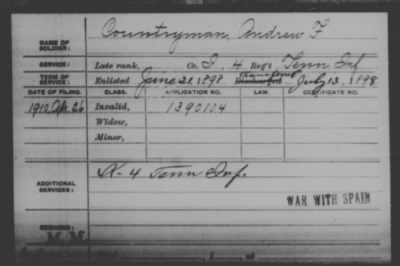 NAME OF SOLDIER: Countryman, Andrew F
SERVICE: Late rank, Co. I, 4 Reg't Tenn Inf
TERM OF SERVICE: Enlisted June 21, 1898 July 13, 1898
DATE OF FILING. CLASS. APPLICATION NO. LAW. CERTIFICATE NO.
1910 Apr 26 Invalid, 1390104
Widow,
Minor,
ADDITIONAL SERVICES: K-4 Tenn Inf.
WAR WITH SPAIN
REMARKS: